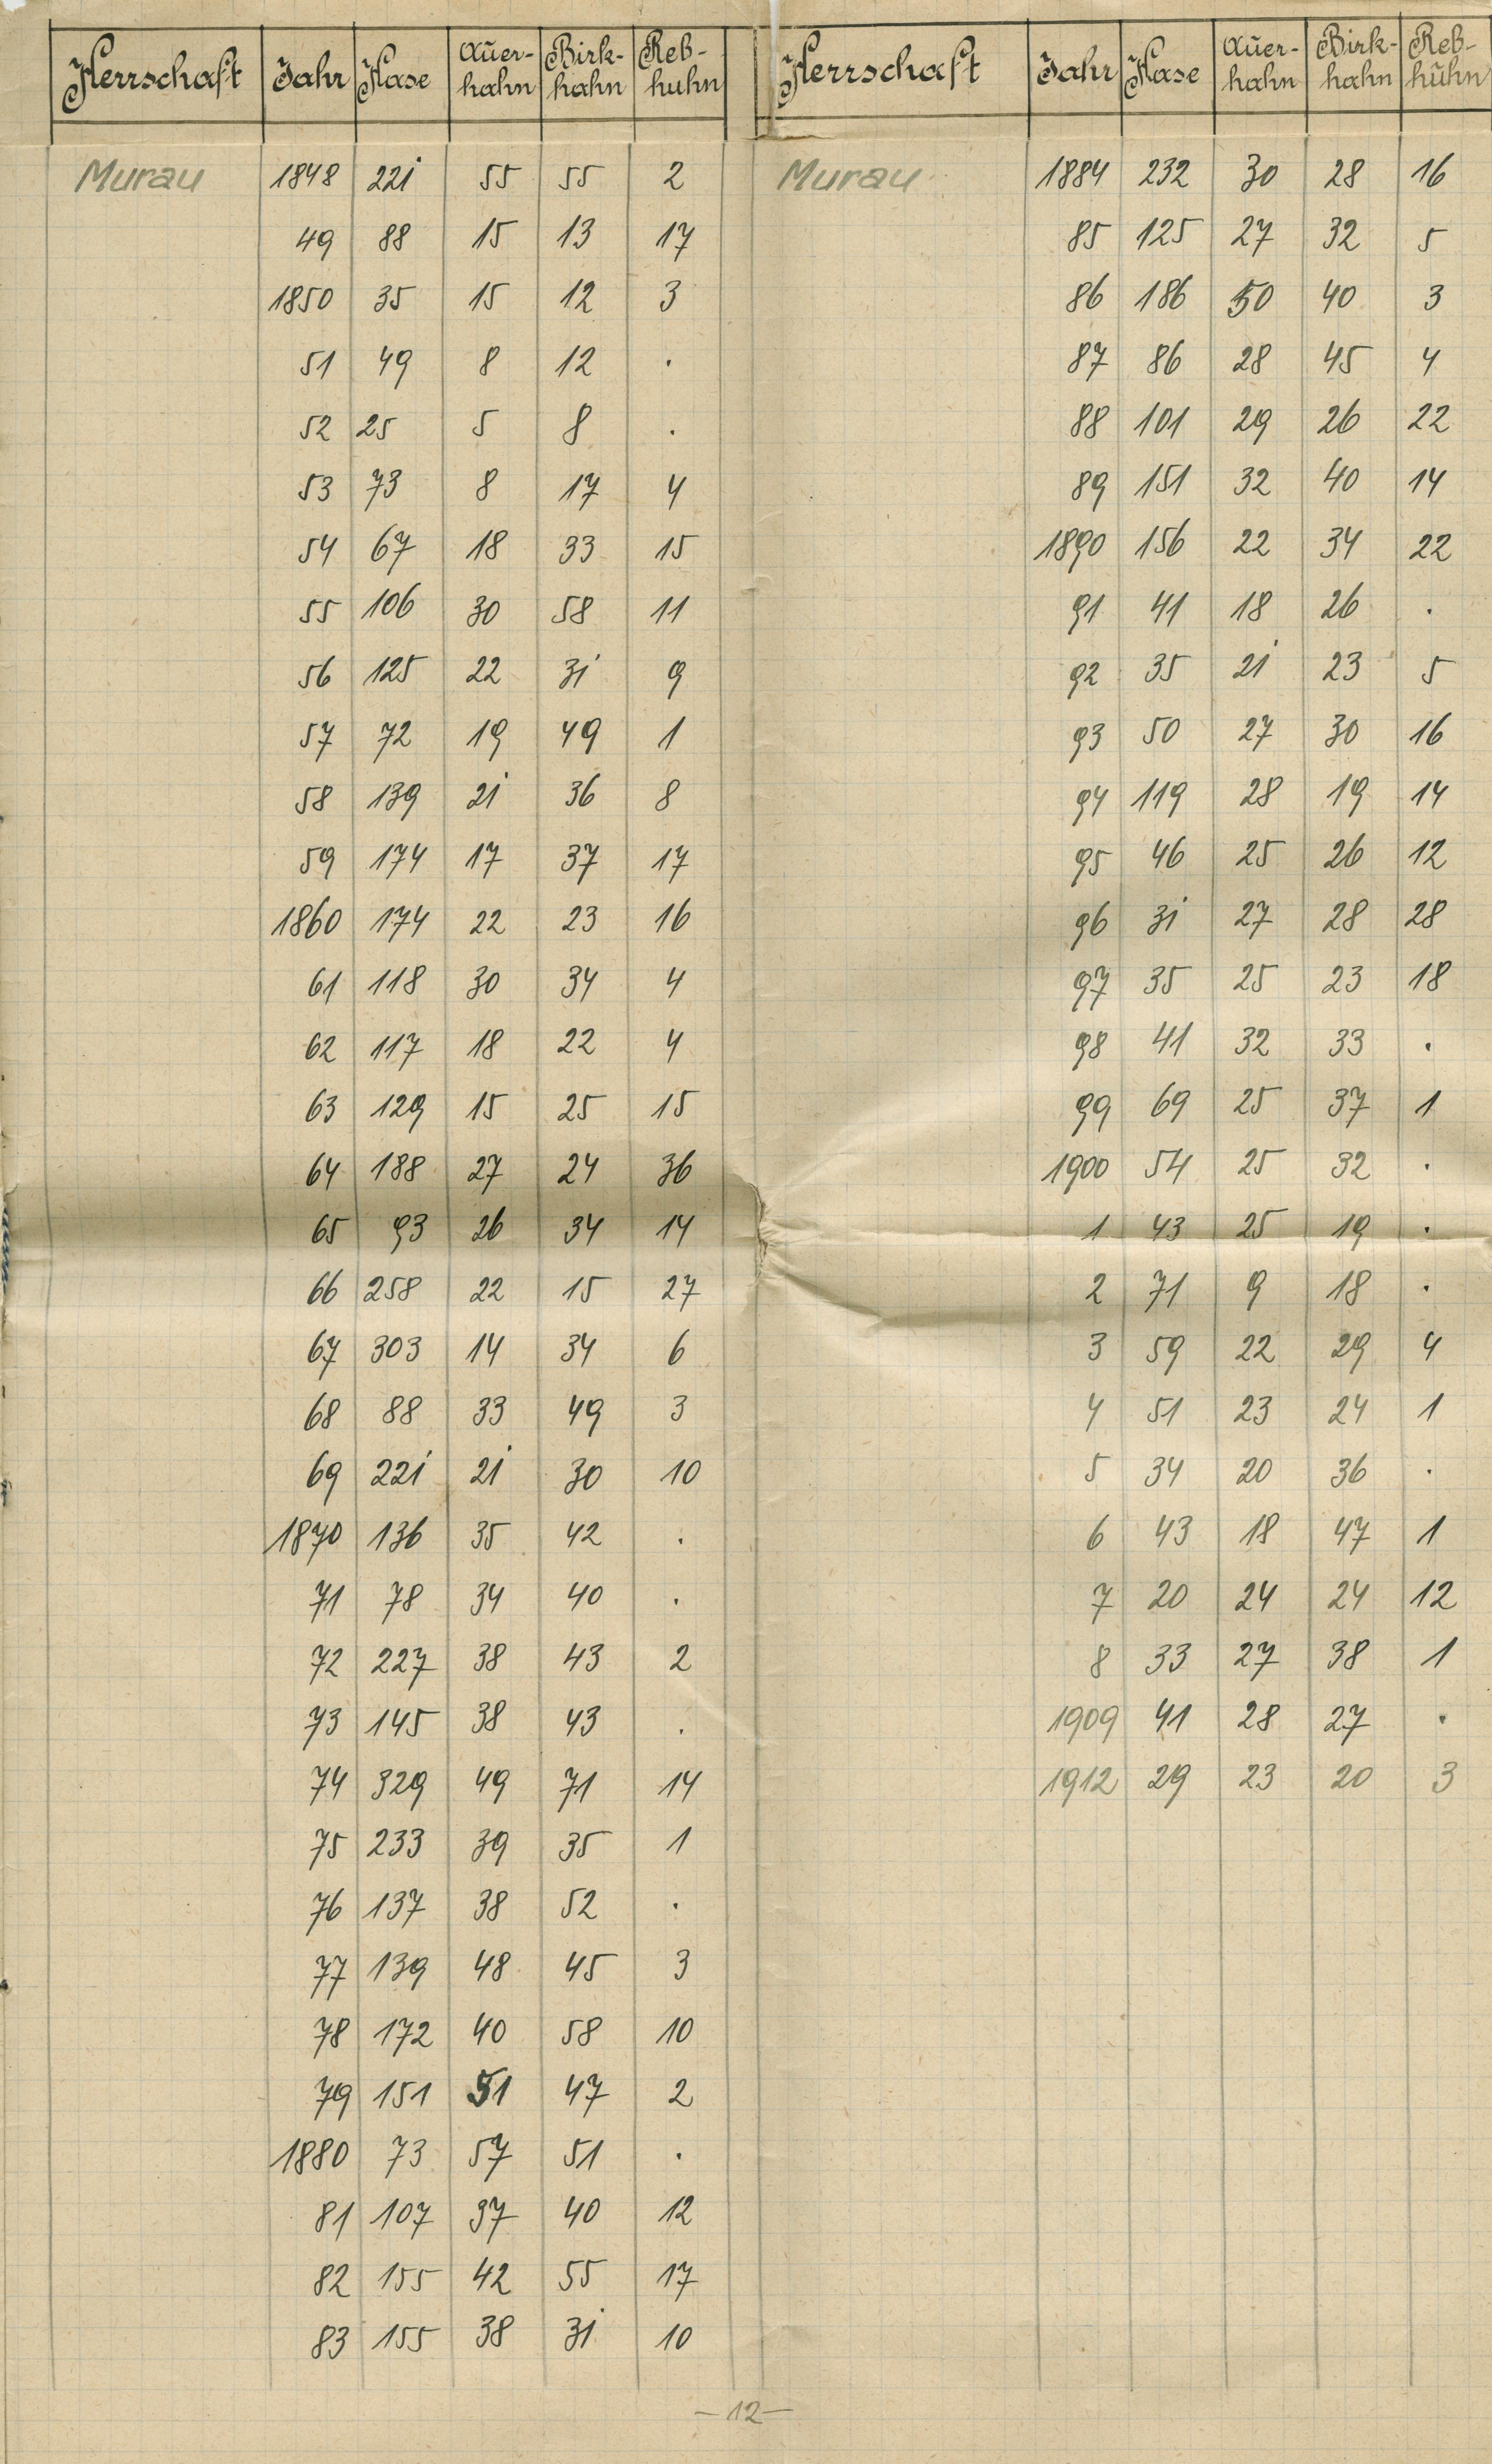 Herrschaft Jahr Hase Auer-hahn Birk-hahn Reb-huhn
Murau 1848 221 55 55 2
49 88 15 13 17
1850 35 15 12 3
51 49 8 12 .
52 25 5 8 .
53 73 8 17 4
54 67 18 33 15
55 106 30 58 11
56 125 22 31 9
57 72 19 49 1
58 139 21 36 8
59 174 17 37 17
1860 174 22 23 16
61 118 30 34 4
62 117 18 22 4
63 129 15 25 15
64 188 27 24 36
65 93 26 34 14
66 258 22 15 27
67 303 14 34 6
68 88 33 49 3
69 221 21 30 10
1870 136 35 42 .
71 78 34 40 .
72 227 38 43 2
73 145 38 43 .
74 329 49 71 14
75 233 39 35 1
76 137 38 52 .
77 139 48 45 3
78 172 40 58 10
79 151 51 47 2
1880 73 57 51 .
81 107 37 40 12
82 155 42 55 17
83 155 38 31 10
Herrschaft Jahr Hase Auer-hahn Birk-hahn Reb-hühn
Murau 1884 232 30 28 16
85 125 27 32 5
86 186 50 40 3
87 86 28 45 4
88 101 29 26 22
89 151 32 40 14
1890 156 22 34 22
91 41 18 26 .
92 35 21 23 5
93 50 27 30 16
94 119 28 19 14
95 46 25 26 12
96 31 27 28 28
97 35 25 23 18
98 41 32 33 .
99 69 25 37 1
1900 54 25 32 .
1 43 25 19 .
2 71 9 18 .
3 59 22 29 4
4 51 23 24 1
5 34 20 36 .
6 43 18 47 1
7 20 24 24 12
8 33 27 38 1
1909 41 28 27 .
1912 29 23 20 3
-12-